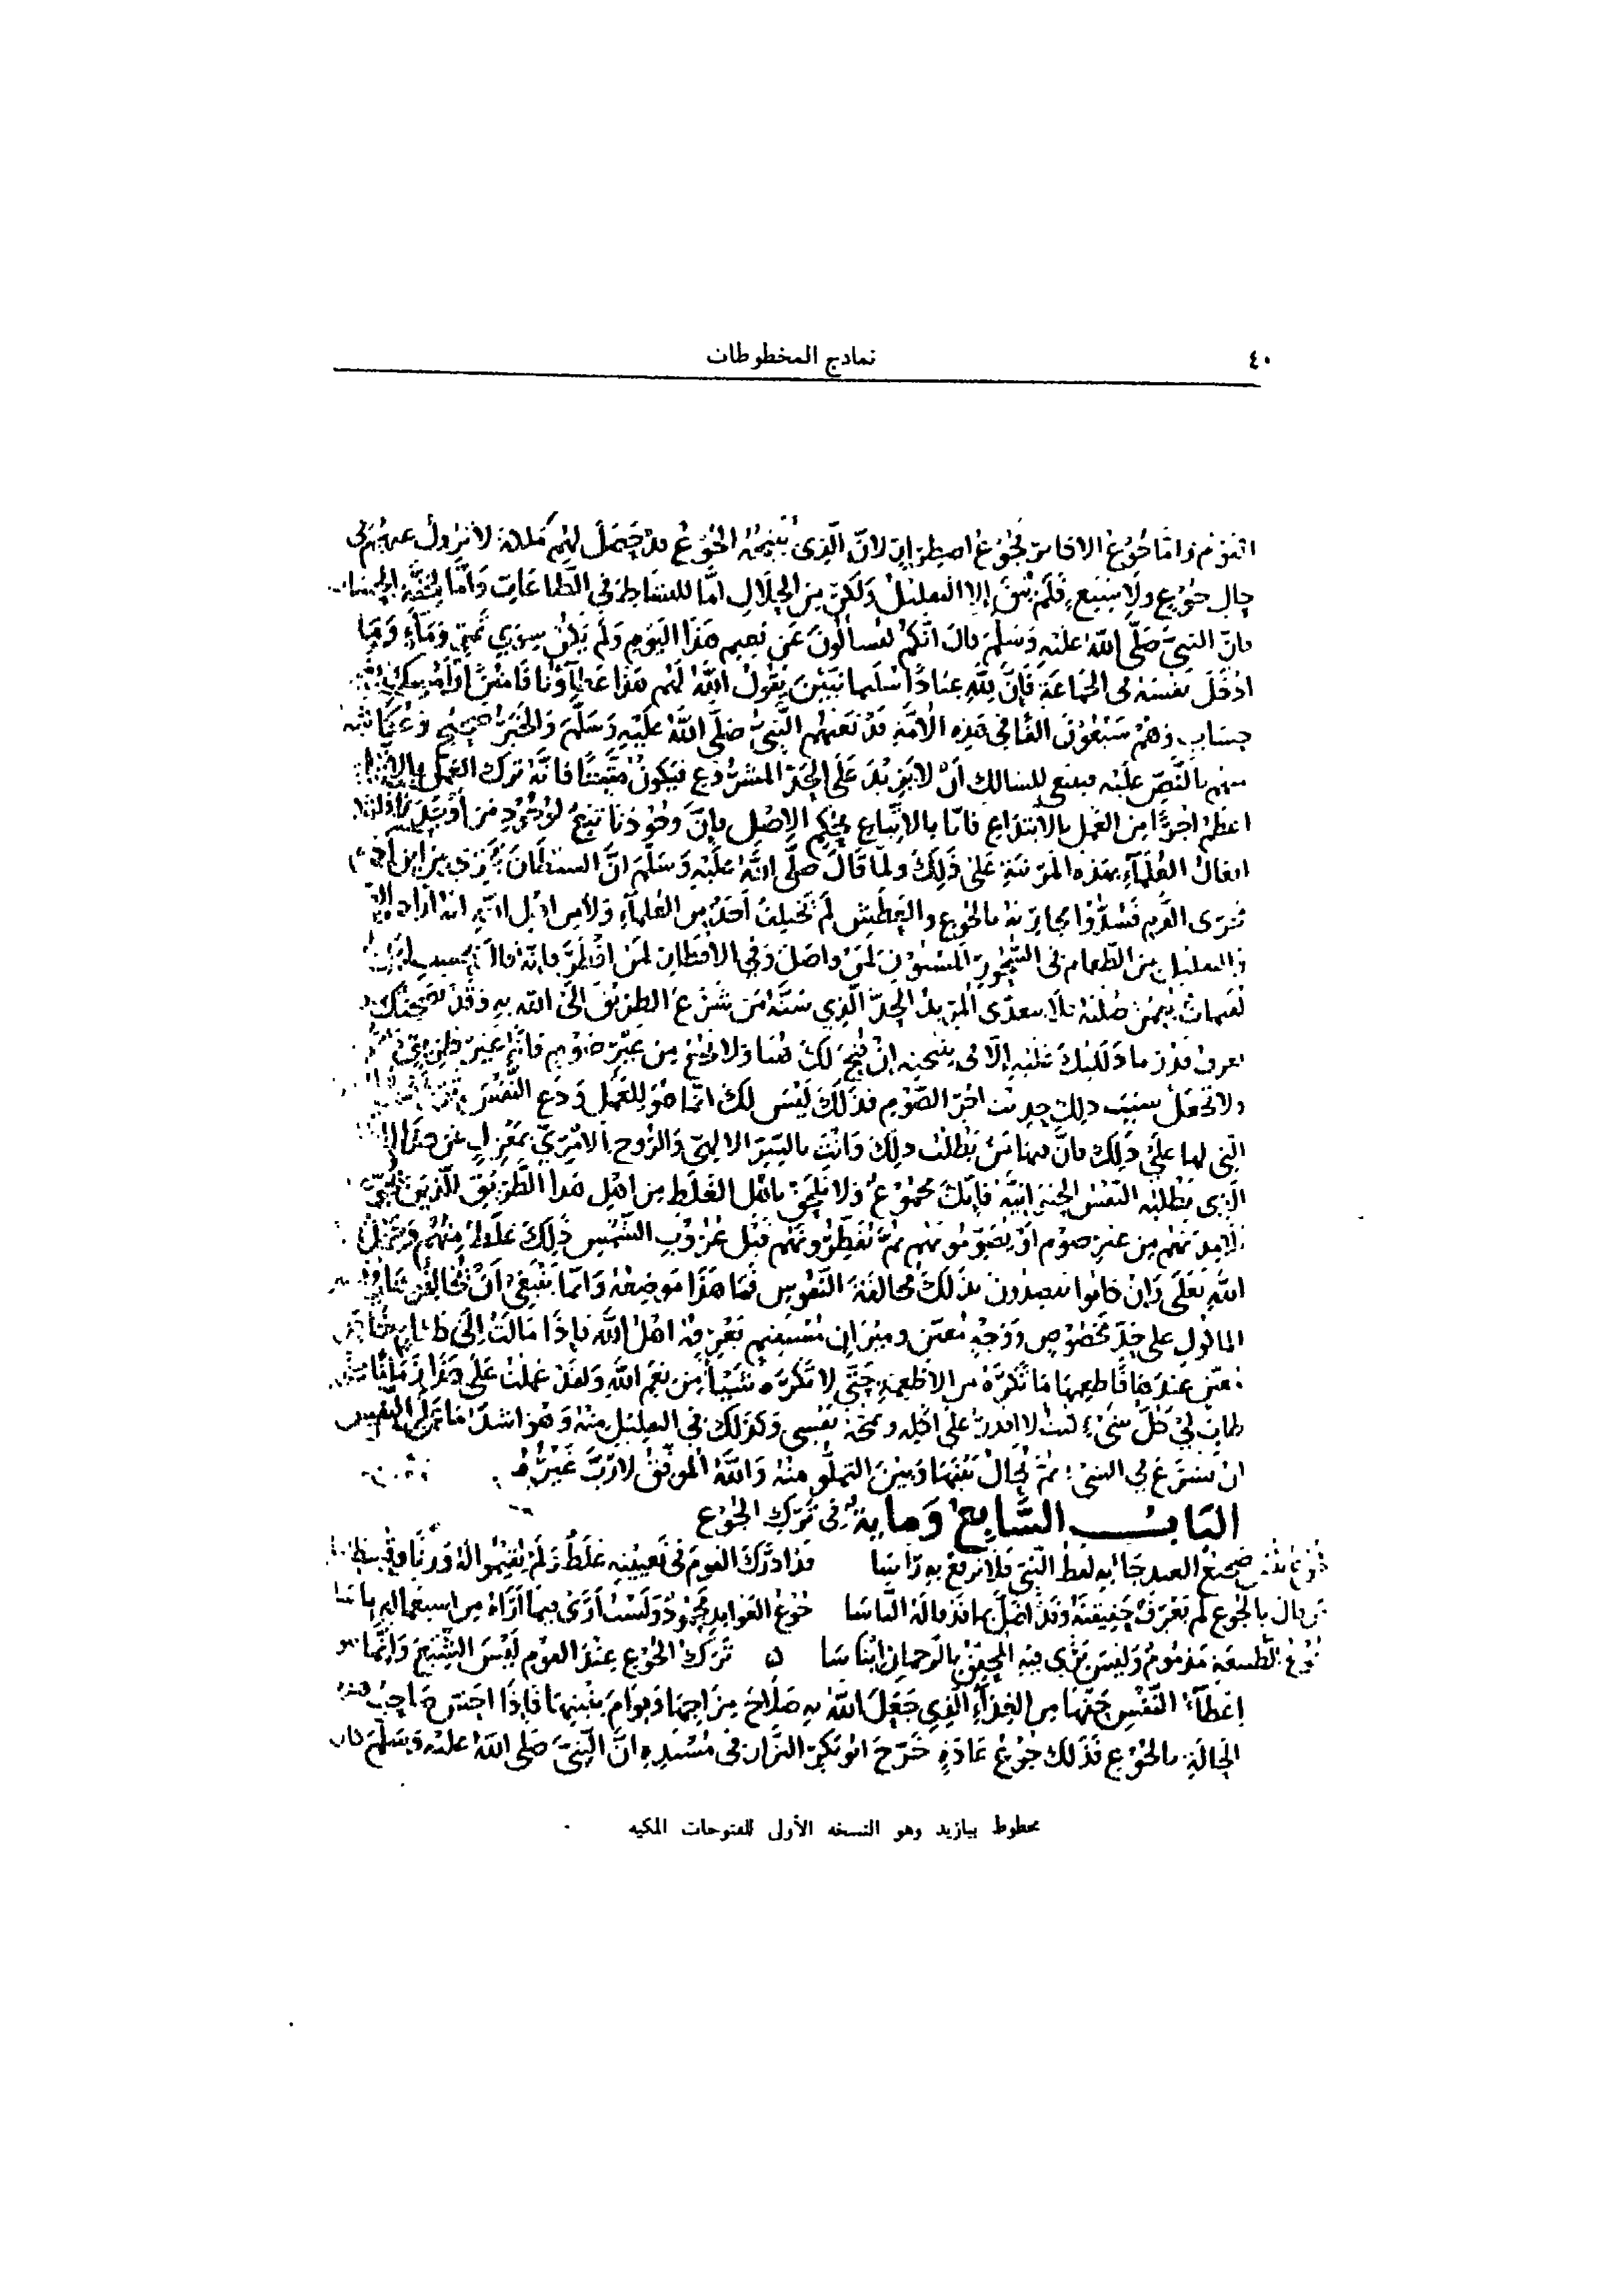 ٤٠
نماذج المخطوطات
القوم واما جوع الاكابر فجوع اضطرار لان الذى ينتجه الجوع قد حصل لهم ملكة لا تزول عنهم فى
حال جوع ولا شبع فلم يبق إلا التقليل ولكن من الحلال اما للنشاط فى الطاعات واما لخفة الحساب
فان النبى صلى الله عليه وسلم قال انكم لتسألون عن نعيم هذا اليوم ولم يكن سوى تمر وماء وما
ادخل نفسه فى الجماعة فان لله عبادا سليمانيين يقول الله لهم هذا عطاؤنا فامنن او امسك بغير
حساب وهم سبعون الفا فى هذه الامة قد نعتهم النبى صلى الله عليه وسلم والخبر صحيح وعكاشة
منهم بالنص عليه فينبغى للسالك أن لا يزيد على الحد المشروع فيكون متبعا فانه ترك العمل بالاتباع
اعظم اجرا من العمل بالابتداع فانا بالاتباع بحكم الاصل فان وجودنا تبع لوجود من اوجدنا
العلماء بهذه المرتبة على ذلك ولما قال صلى الله عليه وسلم ان الشيطان يجرى من ابن ادم
مجرى الدم فسدوا مجاريه بالجوع والعطش لم يختلف أحد من العلماء ولا من اهل الله انه اراد الصوم
والتقليل من الطعام فى السحور المسنون لمن واصل وفى الافطار لمن افطر فانه قال بحسب ابن ادم
لقيمات يقمن صلبه فلا يتعدى المريد الحد الذى سنه من شرع الطريق الى الله به وقد نصحتك
قدر ما دللتك عليه إلا فى نتيجته ان فتح لك هنا ولا تجع من غير صوم فانه غير طريق
ولا تجعل سبب ذلك حديث اجر الصوم فذلك ليس لك انما هو للعمل ودع النفس
التى لها على ذلك فان فينا من يطلب ذلك وانت بالسر الالهى والروح الامرى بمعزل عن هذا
الذى تطلبه النفس الحيوانية فانك مجموع ولا تلحق باهل الغلط من اهل هذا الطريق الذين
من غير صوم او يصومونهم ثم يفطرونهم قبل غروب الشمس ذلك غلط منهم وجهل
الله تعلى وان كانوا يقصدون بذلك مخالفة النفوس فما هذا موضعه وانما ينبغى أن
على حد مخصوص ووجه معين وميزان مستقيم يعرفه اهل الله فاذا مالت الى طعام خاص
معين عندها فاطعمها ما تكره من الاطعمة حتى لا تكره شيئا من نعم الله ولقد عملت على هذا زمانا حتى
طاب لى كل شىء كنت لا اقدر على اكله وتمجه نفسى وكذلك فى التقليل منه وهو اشد ما على النفس
ان تشرع فى الشىء ثم يحال بينها وبين التملى منه والله الموفق لا رب غيره
الباب السابع وماية فى ترك الجوع
ضجيع العبد جاء به لفظ النبى فلا ترفع به راسا قد ادرك القوم فى تعيينه غلط ولم يقيموا له وزنا وقسطاسا
من قال بالجوع لم يعرف حقيقته وقد اضل بما قد قاله الناسا جوع العوايد محمود ولست أرى فيما أراه من استعماله باسا
جوع الطبيعة مذموم وليس يرى فيه المحقق بالرحمان ايناسا ترك الجوع عند القوم ليس الشبع وانما هو
إعطاء النفس حقها من الغذاء الذى جعل الله به صلاح مزاجها وقوام بنيتها فاذا احس صاحب هذه
الحالة بالجوع فذلك جوع عادة خرج ابو بكر البزار فى مسنده ان النبى صلى الله عليه وسلم كان
مخطوط بيازيد وهو النسخه الأولى للفتوحات المكيه